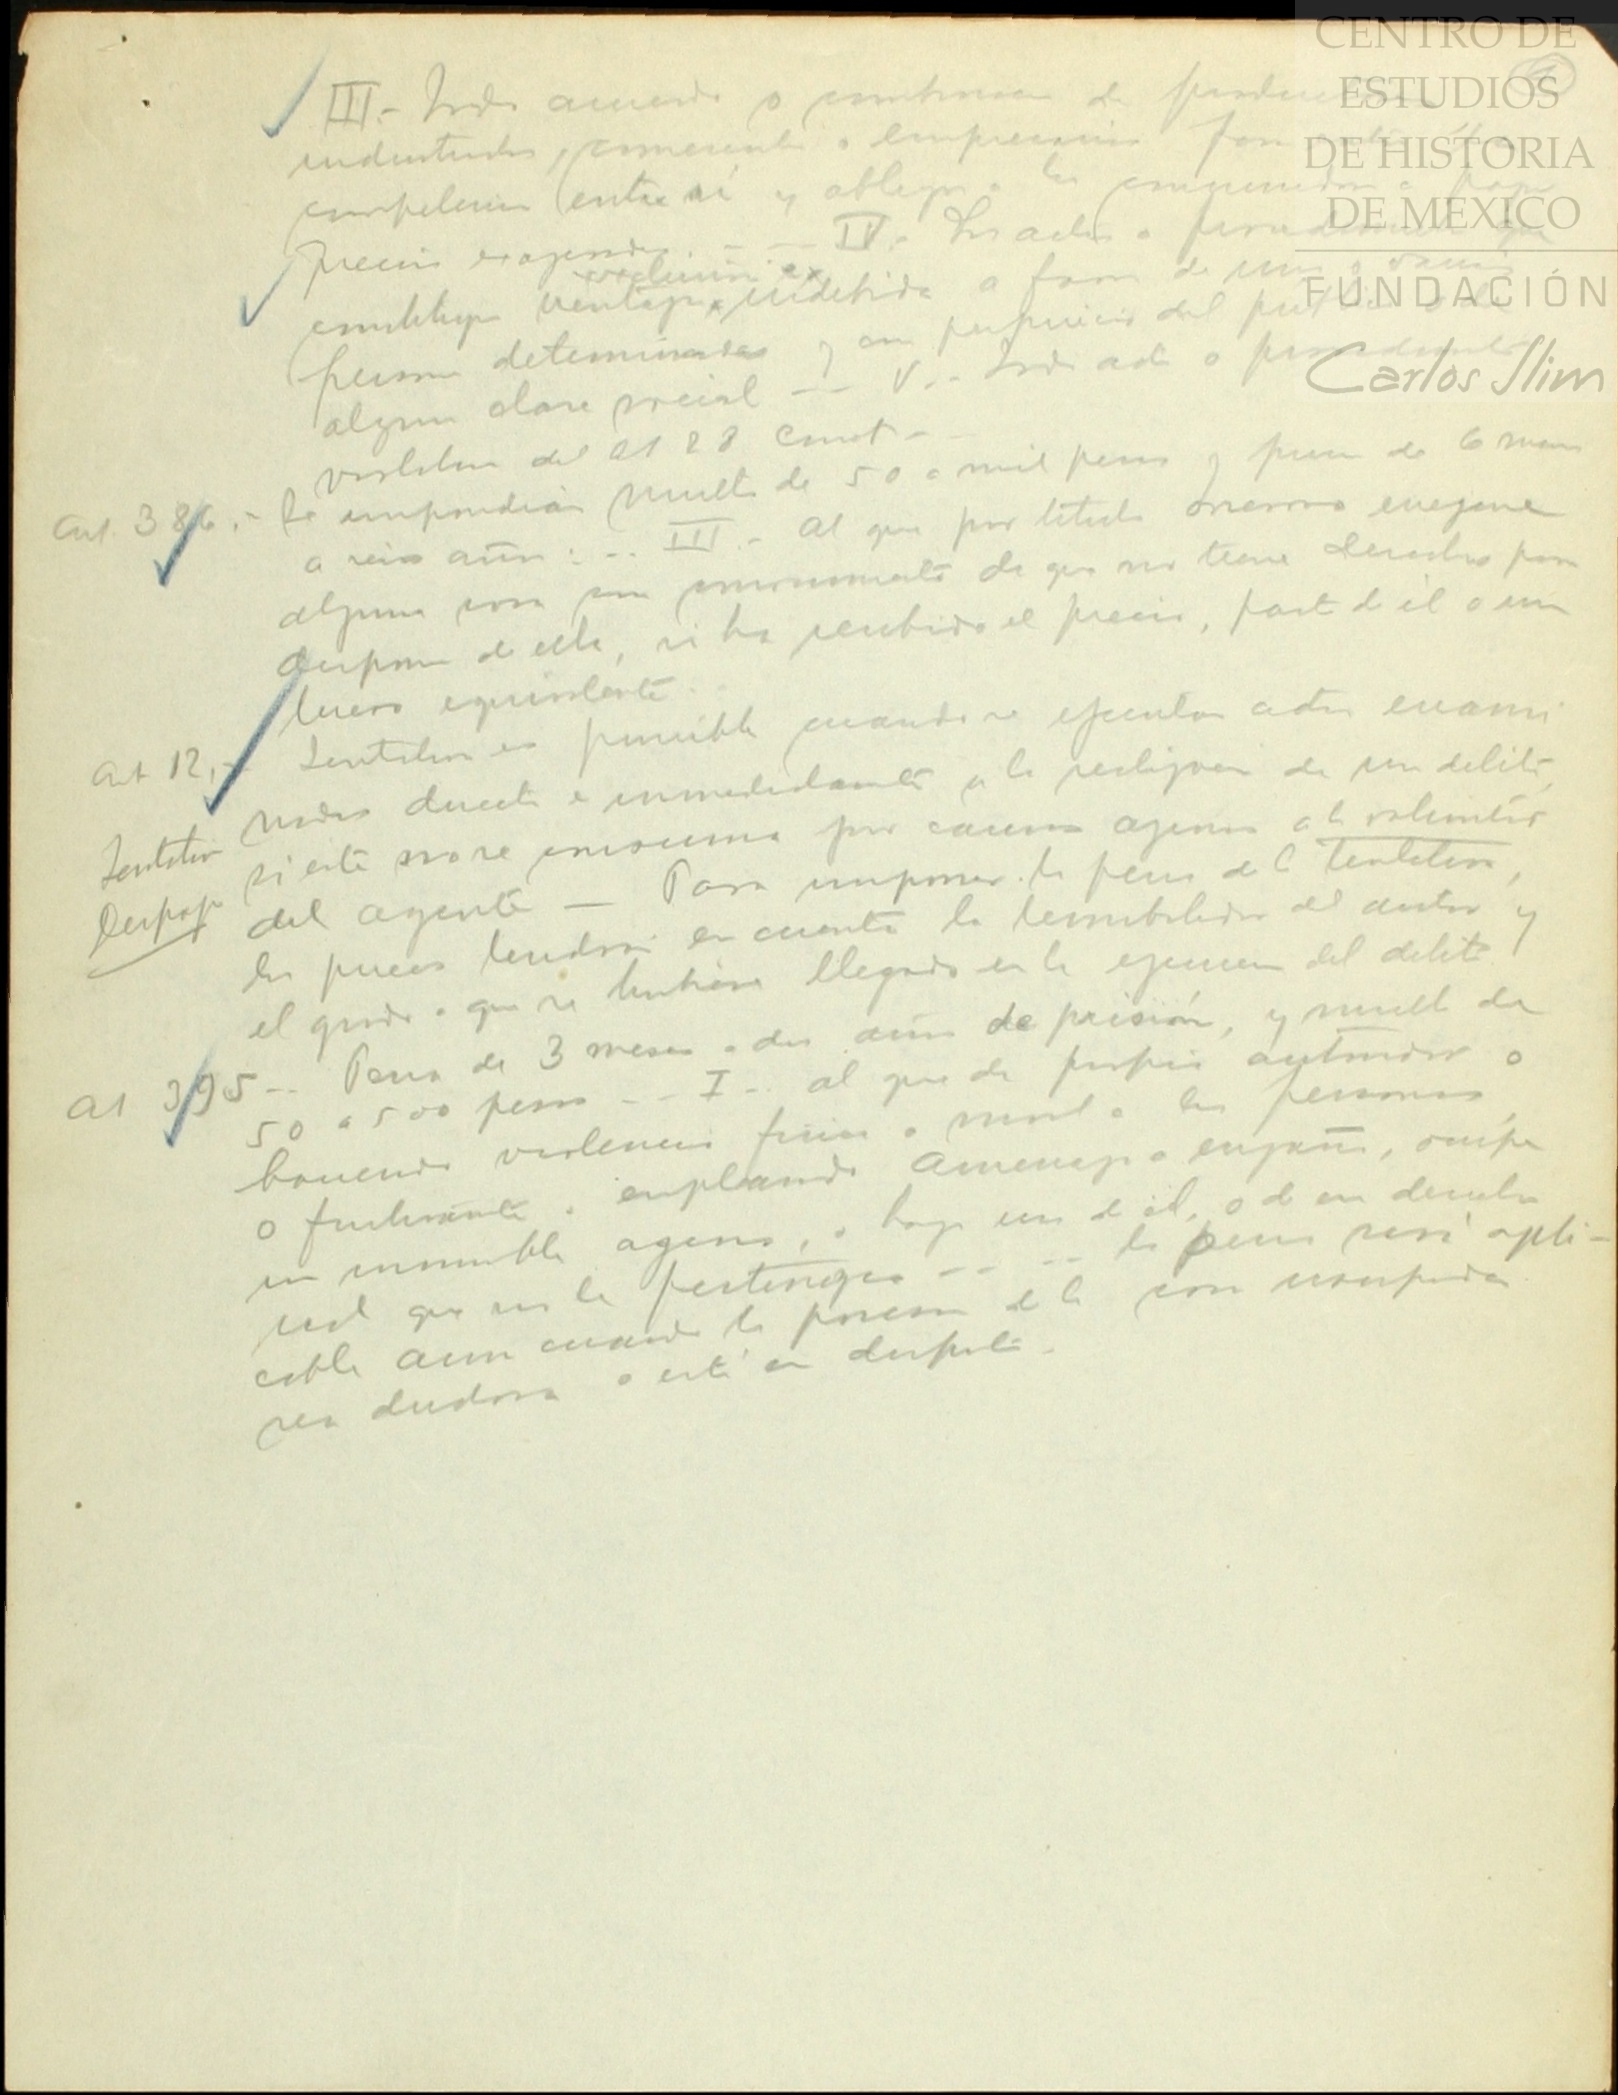 CENTRO DE
ESTUDIOS
DE HISTORIA
DE MEXICO
FUNDACIÓN
Carlos Slim
III.- Todo acuerdo o combinacion de productores
industriales, comerciantes o empresarios para
competencia entre sí y obligar a los consumidores a pagar
precios exagerados. - - - IV.- Los actos o procedimientos que
exclusiva
constituyan ventaja, indebida a favor de una o varias
personas determinadas y con perjuicio del publico o de
alguna clase social - - - V.- Todo acto o procedimiento
violatorio del art 28 Const - -
Art. 386.- Se impondrán multa de 50 a mil pesos y prision de 6 meses
a seis años: - - III.- Al que por titulo oneroso enajene
alguna cosa con conocimiento de que no tiene derecho para
disponer de ella, si ha recibido el precio, parte de él o un
lucro equivalente.
Art 12.- Tentativa es punible cuando se ejecutan actos encami
nados directa e inmediatamente a la realizacion de un delito,
Tentativa
si este no se consuma por causas agenas a la voluntad
Despojo
del agente — Para imponer la pena de la tentativa,
los jueces tendran en cuenta la temibilidad del autor y
el grado a que se hubiere llegado en la ejecucion del delito.
Art 395 - - Pena de 3 meses a dos años de prisión, y multa de
50 a 500 pesos - - I - . al que de propia autoridad o
haciendo violencia fisica o moral a las personas,
o furtivamente o empleando amenaza o engaño, ocupe
un inmueble ageno, o haga uso de él, o de un derecho
real que no le pertenezca - - - - la pena será apli-
cable aun cuando la posesion de la cosa usurpada
sea dudosa o esté en disputa.